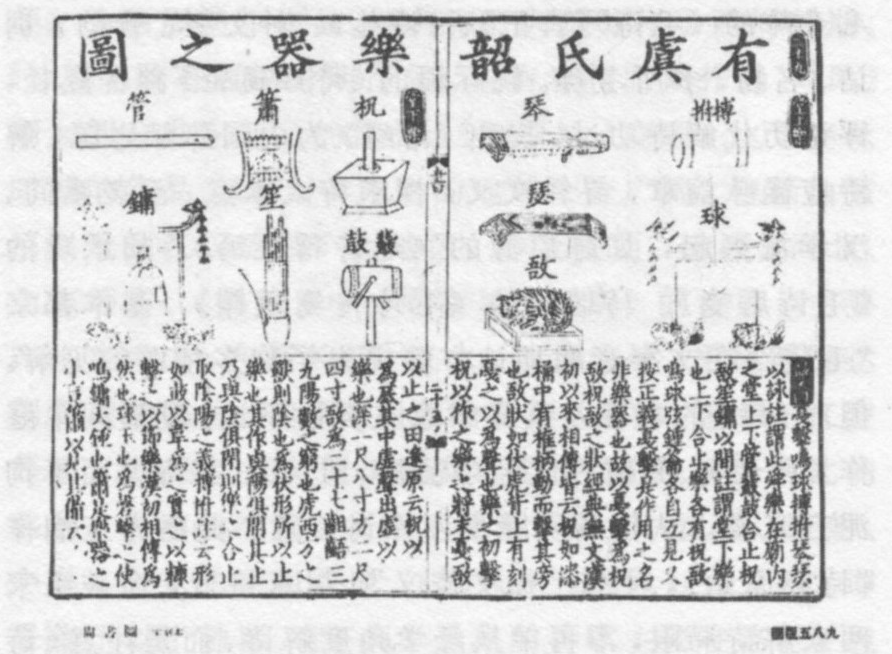 有虞氏韶樂器之圖
搏拊
球
琴
瑟
敔
柷
鼗鼓
簫
笙
管
鏞
戛擊鳴球搏拊琴瑟
以詠註謂此舜樂在廟內
之堂上下管鼗鼓合止柷
敔笙鏞以間註謂堂下樂
也上下合止樂各有柷敔
鳴球弦鍾籥各自互見又
按正義戛擊是作用之名
非樂器也故以戛擊為柷
敔柷敔之狀經典無文漢
初以來相傳皆云柷如漆
桶中有椎柄動而擊其旁
也敔狀如伏虎背上有刻
戛之以為聲也樂之初擊
柷以作之樂之將末戛敔
以止之田遠原云柷以
為其中虛聲出虛以
樂也深一尺八寸方二尺
四寸敔為二十七齟齬三
九陽數之窮也虎西方之
獸則陰也為伏形所以止
樂也其作與陽俱開其止
乃與陰俱閉則樂之合止
取陰陽之義搏拊註云形
如鼓以韋為之實之以糠
擊之以節樂漢初相傳為
然也球玉也為磬之使
鳴鏞鍾也簫
言簫以見其備
三十
九八五版圖
圖書尚